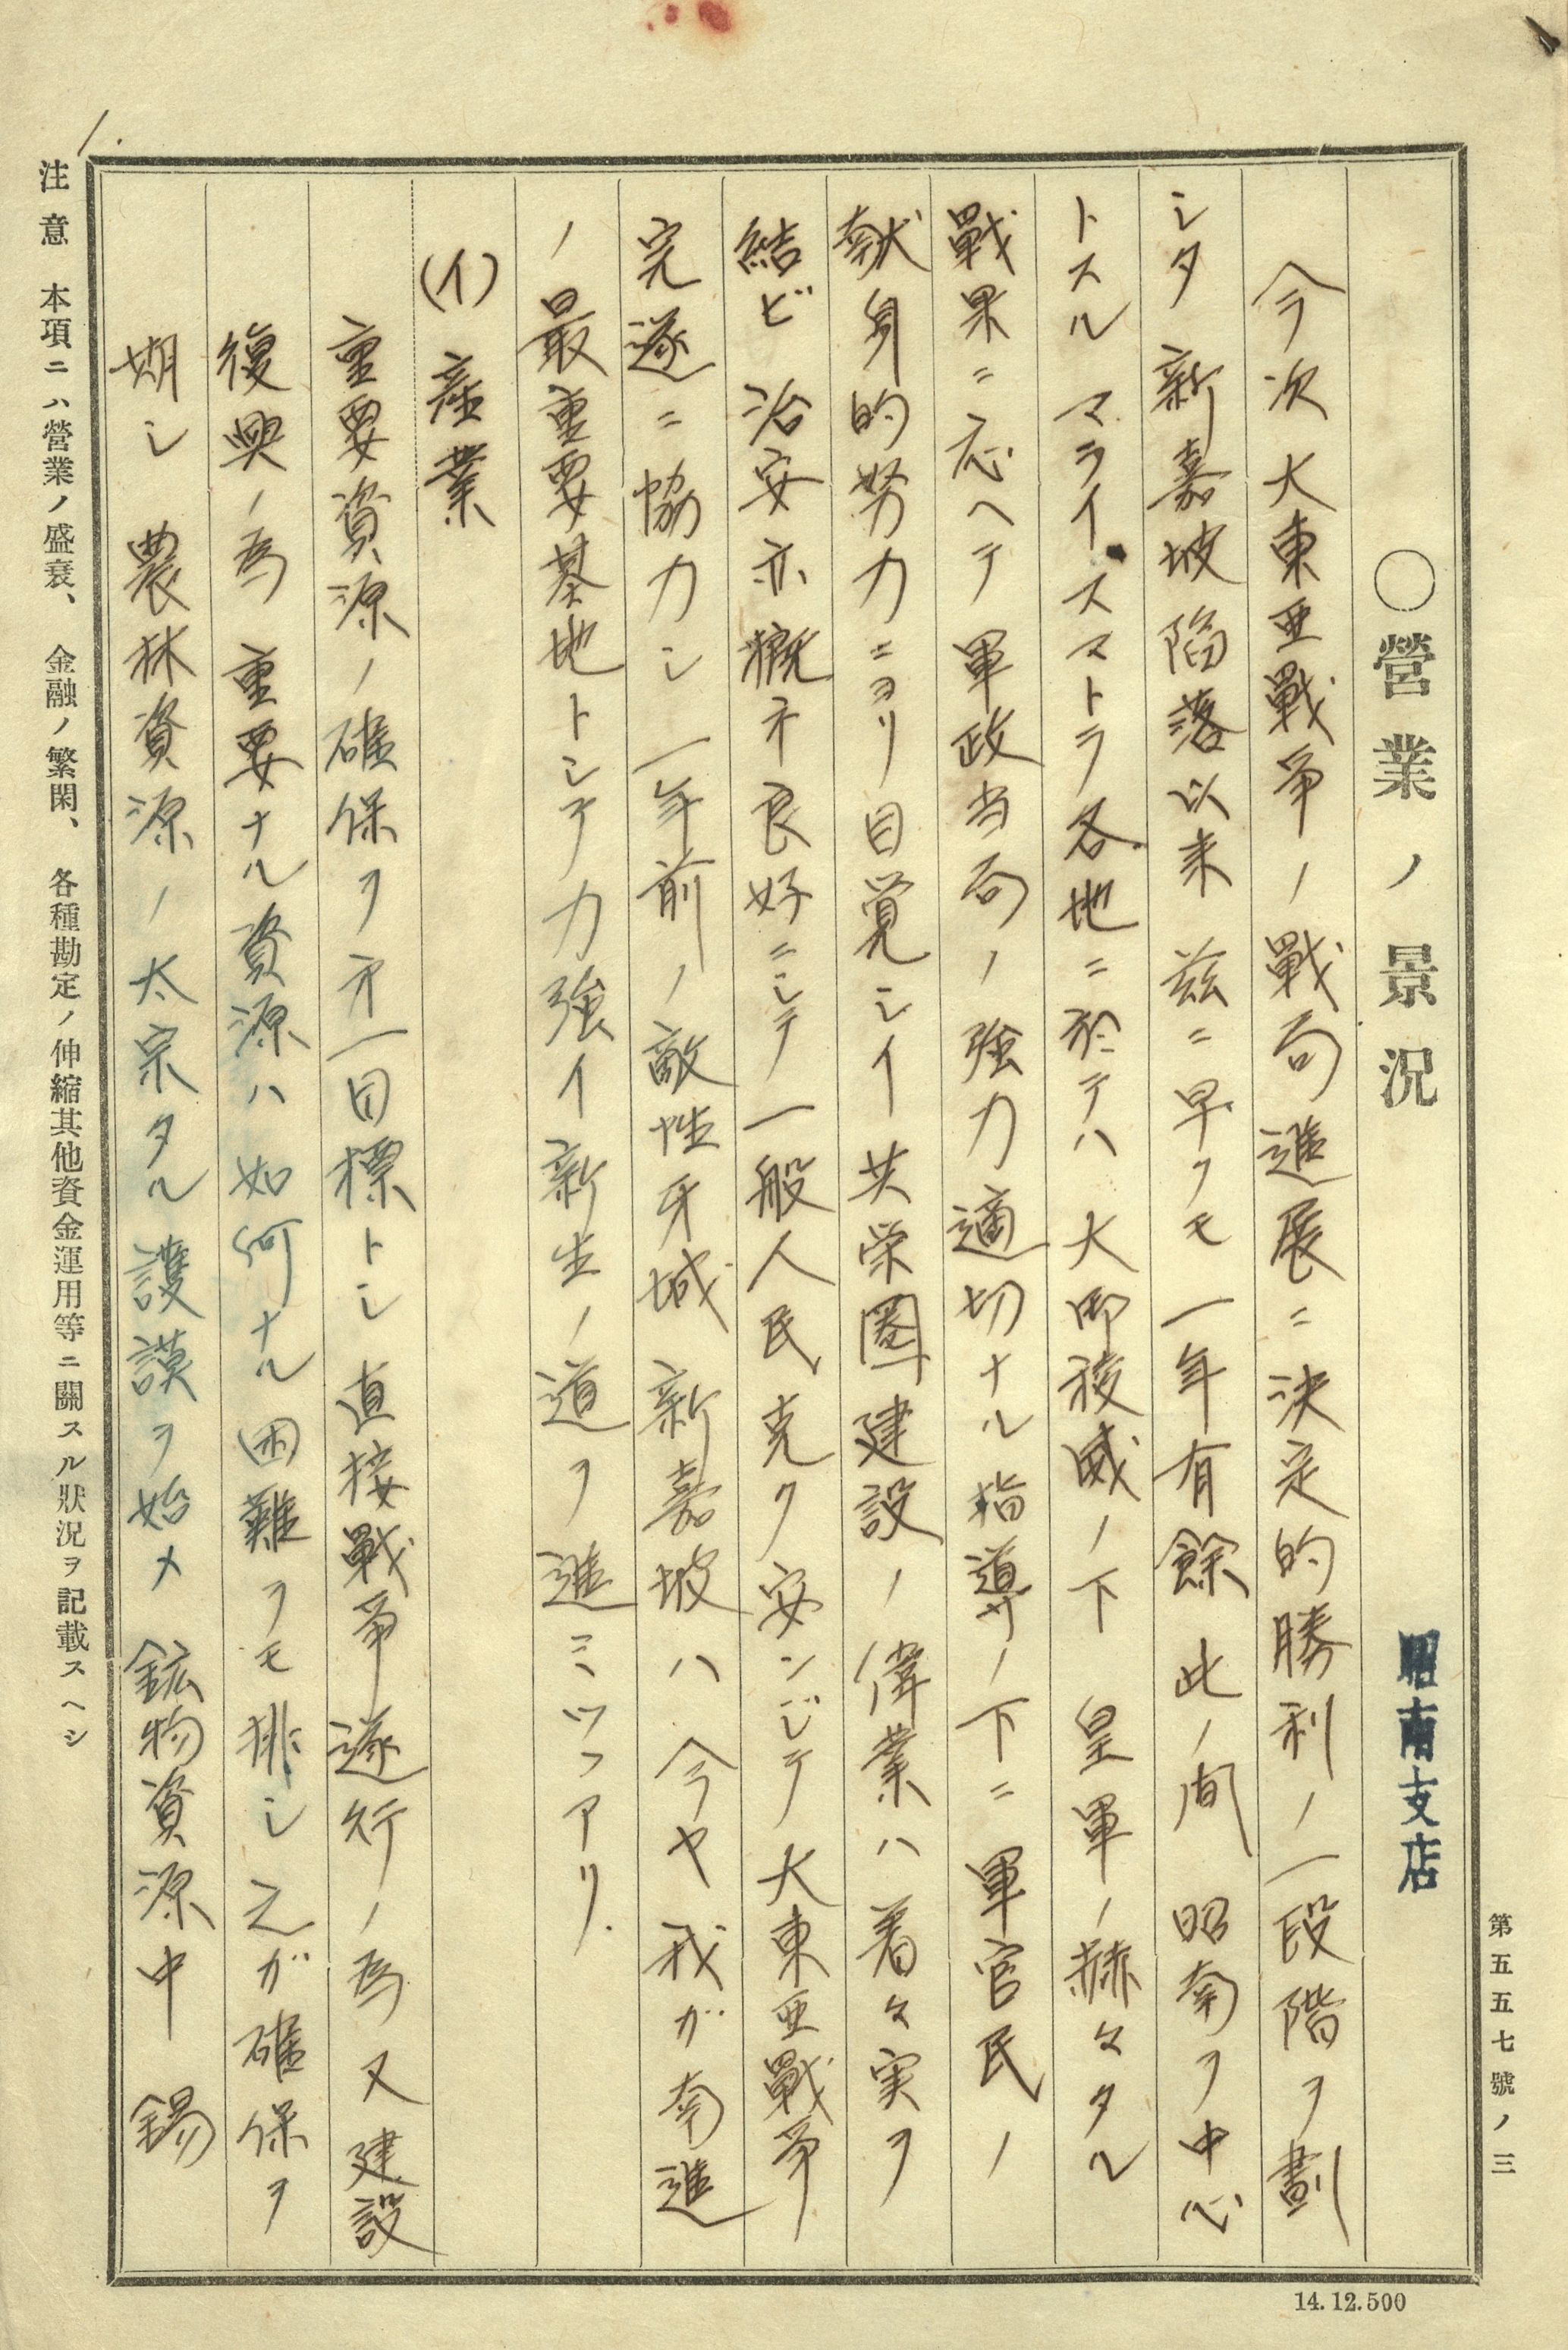 第五五七號ノ三
○營業ノ景況
昭南支店
今次大東亜戰爭ノ戰局進展ニ決定的勝利ノ一段階ヲ劃
シタ新嘉坡陥落以来茲ニ早クモ一年有餘此ノ間昭南ヲ中心
トスルマライ・スマトラ各地ニ於テハ大御稜威ノ下皇軍ノ赫々タル
戰果ニ応ヘテ軍政当局ノ強力適切ナル指導ノ下ニ軍官民ノ
献身的努力ニヨリ目覚シイ共栄圏建設ノ偉業ハ着々実ヲ
結ビ治安亦概ネ良好ニシテ一般人民克ク安ンジテ大東亜戰爭
完遂ニ協力シ一年前ノ敵性牙城新嘉坡ハ今ヤ我ガ南進
ノ最重要基地トシテ力強イ新生ノ道ヲ進ミツヽアリ.
(イ)産業
重要資源ノ確保ヲ才一目標トシ直接戰爭遂行ノ為又建設
復興ノ為重要ナル資源ハ如何ナル困難ヲモ排シ之ガ確保ヲ
期シ農林資源ノ太宗タル護謨ヲ始メ鉱物資源中錫
注意 本項ニハ營業ノ盛衰、金融ノ繁閑、各種勘定ノ伸縮其他資金運用等ニ關スル狀況ヲ記載スヘシ
1.
14.12.500